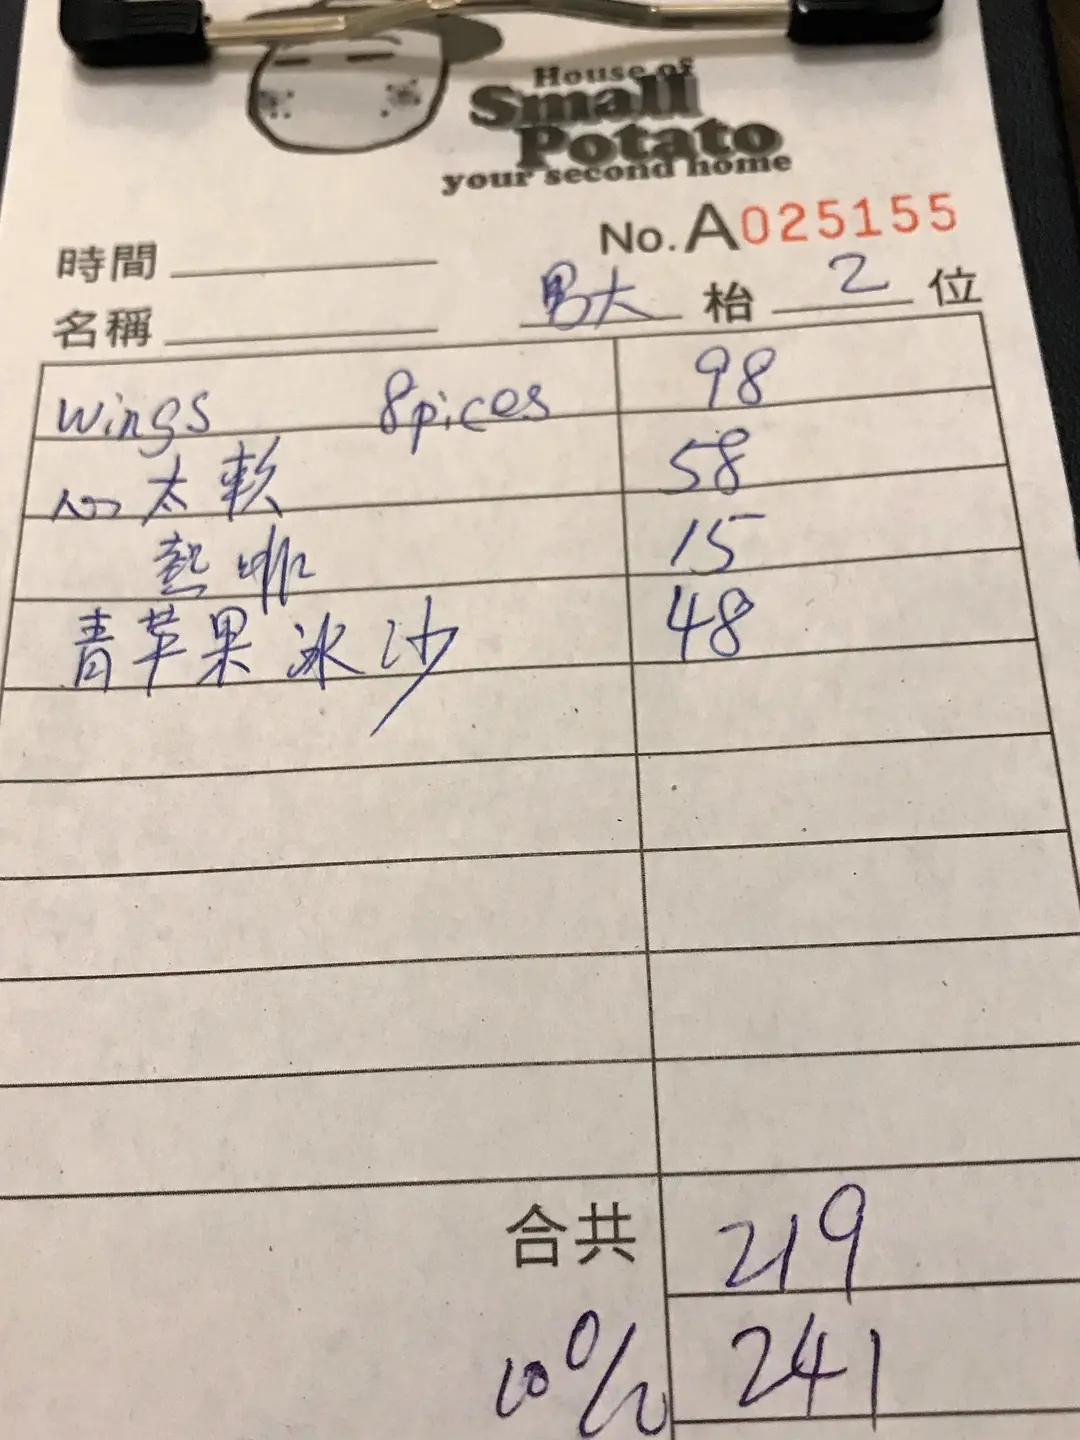 House of
Small
Potato
your second home
No. A025155
時間
男大 枱 2 位
名稱
wings 8pices 98
心太軟 58
熱啡 15
青苹果冰沙 48
合共 219
10% 241